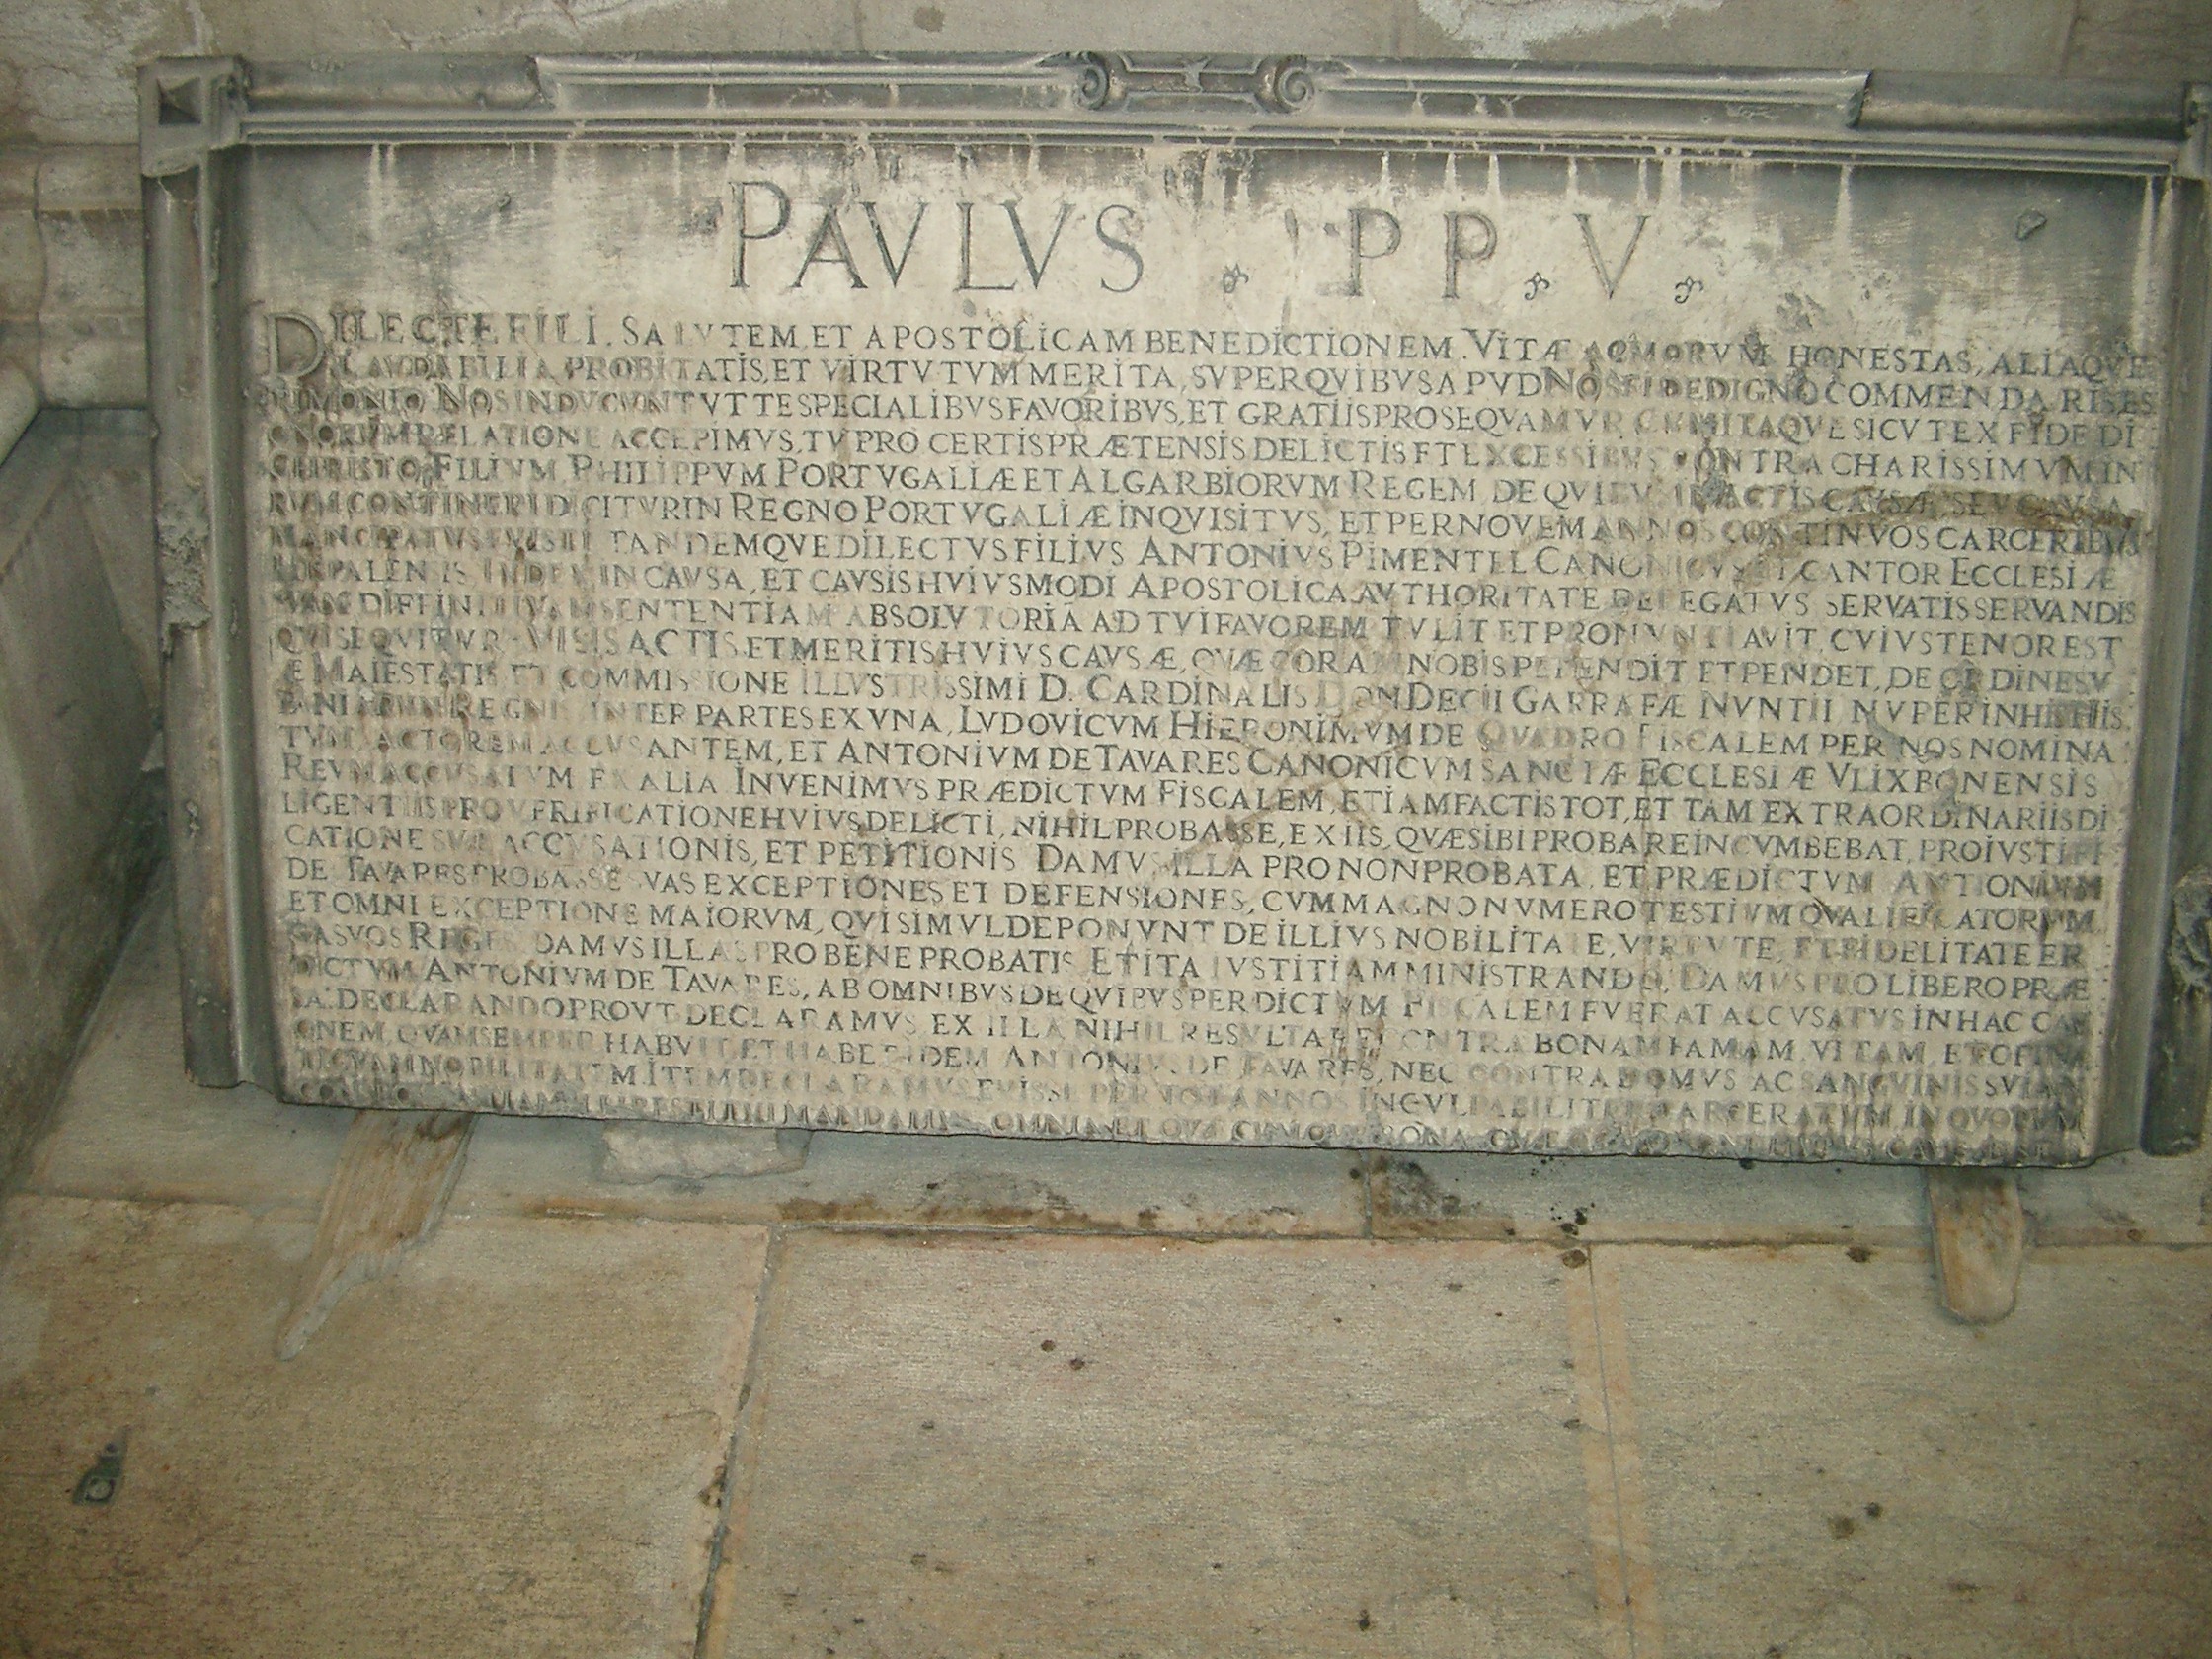 PAVLVS . PP . V .
DILECTE FILI . SALVTEM, ET APOSTOLICAM BENEDICTIONEM . VITÆ AC MORVM HONESTAS, ALIAQVE
LAVDABILIA PROBITATIS, ET VIRTVTVM MERITA, SVPER QVIBVS APVD NOS FIDE DIGNO COMMENDARIS ES
TIMONIO NOS INDVCVNT VT TE SPECIALIBVS FAVORIBVS, ET GRATIIS PROSEQVAMVR CVM ITAQVE SICVT EX FIDE DI
GNORVM RELATIONE ACCEPIMVS, TV PRO CERTIS PRÆTENSIS DELICTIS ET EXCESSIBVS CONTRA CHARISSIMVM IN
CHRISTO FILIVM PHILIPPVM PORTVGALLIÆ ET ALGARBIORVM REGEM DE QVIBVS IN ACTIS CAVSÆ, SEV CAVSA
RVM CONTINERI DICITVR IN REGNO PORTVGALIÆ INQVISITVS, ET PER NOVEM ANNOS CONTINVOS CARCERIBVS
MANCIPATVS FVISTI TANDEMQVE DILECTVS FILIVS ANTONIVS PIMENTEL CANONICVS ET CANTOR ECCLESIÆ
HISPALENSIS IVDEX IN CAVSA, ET CAVSIS HVIVSMODI APOSTOLICA AVTHORITATE DELEGATVS SERVATIS SERVANDIS
DIFFINITIVAM SENTENTIAM ABSOLVTORIÃ AD TVI FAVOREM TVLIT ET PRONVNTIAVIT, CVIVS TENOR EST
QVI SEQVITVR VISIS ACTIS ET MERITIS HVIVS CAVSÆ, QVÆ CORAM NOBIS PEPENDIT ET PENDET, DE ORDINE SV
Æ MAIESTATIS ET COMMISSIONE ILLVSTRISSIMI D. CARDINALIS DON DECII GARRAFÆ NVNTII NVPER IN HIS HIS
PANIARVM REGNIS INTER PARTES EX VNA, LVDOVICVM HIERONIMVM DE QVADRO FISCALEM PER NOS NOMINA
TVM ACTOREM ACCVSANTEM, ET ANTONIVM DE TAVARES CANONICVM SANCTÆ ECCLESIÆ VLIXBONENSIS
REVM ACCVSATVM EX ALIA INVENIMVS PRÆDICTVM FISCALEM, ETIAM FACTIS TOT, ET TAM EXTRAORDINARIIS DI
LIGENTIIS PRO VERIFICATIONE HVIVS DELICTI, NIHIL PROBASSE, EX IIS, QVÆ SIBI PROBARE INCVMBEBAT, PRO IVSTIFI
CATIONE SVÆ ACCVSATIONIS, ET PETITIONIS DAMVS ILLA PRO NON PROBATA, ET PRÆDICTVM ANTONIVM
DE TAVARES PROBASSE SVAS EXCEPTIONES ET DEFENSIONES, CVM MAGNO NVMERO TESTIVM QVALIFICATORVM
ET OMNI EXCEPTIONE MAIORVM, QVI SIMVL DEPONVNT DE ILLIVS NOBILITATE, VIRTVTE, ET FIDELITATE ER
GA SVOS REGES DAMVS ILLAS PRO BENE PROBATIS ET ITA IVSTITIAM MINISTRANDO, DAMVS PRO LIBERO PRÆ
DICTVM ANTONIVM DE TAVARES, AB OMNIBVS DE QVIBVS PER DICTVM FISCALEM FVERAT ACCVSATVS IN HAC CAV
SA. DECLARANDO PROVT DECLARAMVS EX ILLA NIHIL RESVLTARE CONTRA BONAM FAMAM, VITAM, ET OPINI
ONEM, QVAM SEMPER HABVIT ET HABET IDEM ANTONIVS DE TAVARES, NEC CONTRA DOMVS AC SANGVINIS SVI AN
TIQVAM NOBILITATEM. ITEM DECLARAMVS FVISSE PER TOT ANNOS INCVLPABILITER CARCERATVM, IN QVORVM
RESTITVI MANDAMVS OMNIA ET QVÆCVMQVE BONA QVÆ